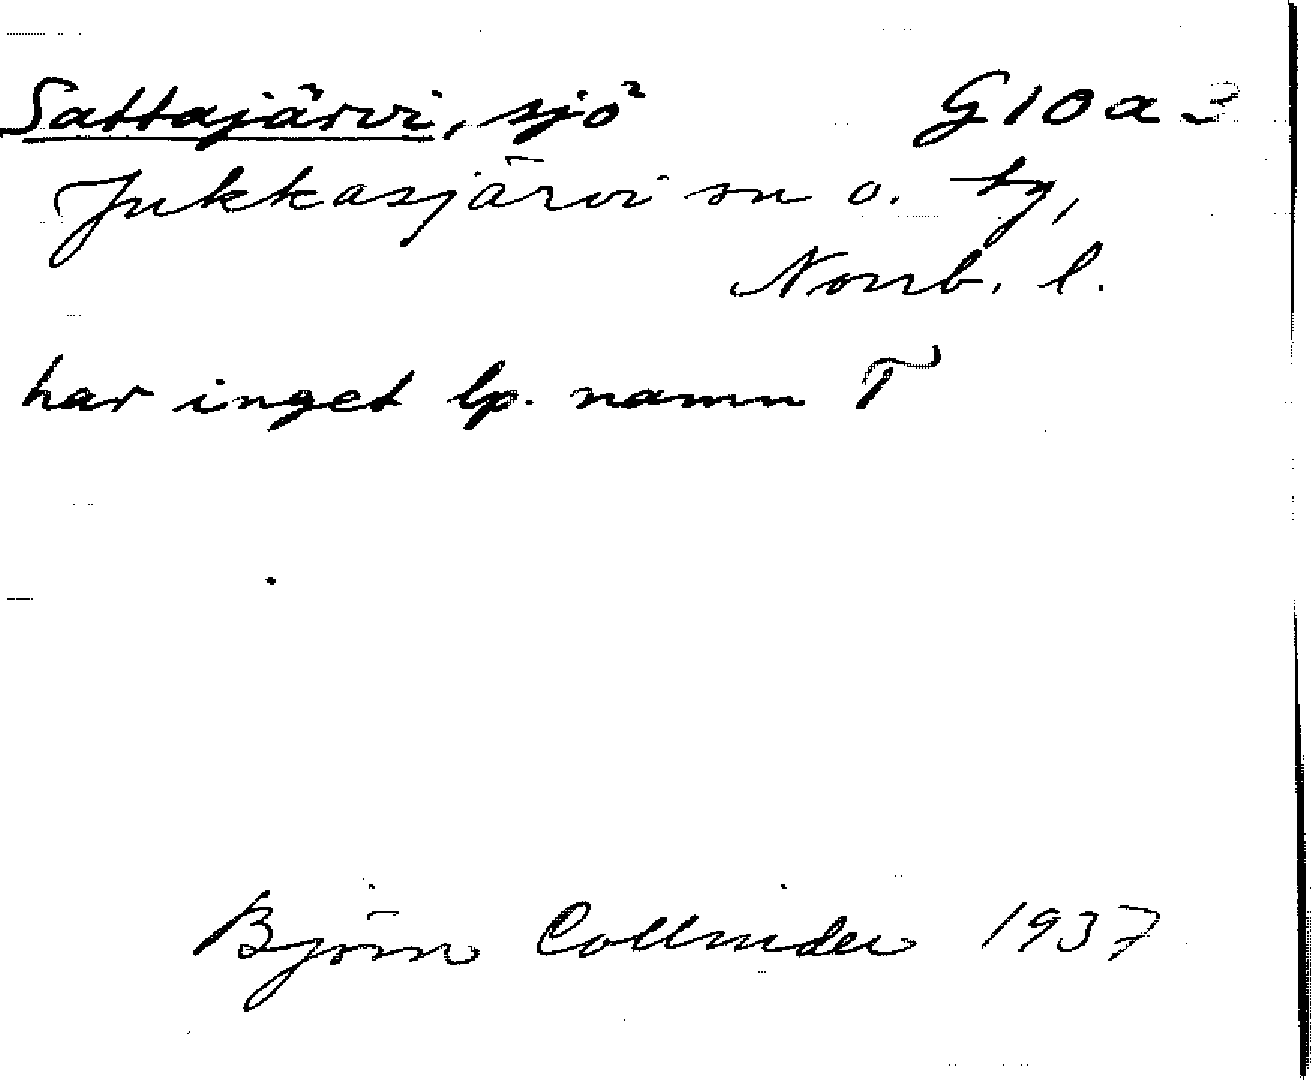 Sattajärvi, sjö G10a3
Jukkasjärvi sn o. tg,
Norrb. l.
har inget lp. namn T
Björn Collinder 1937